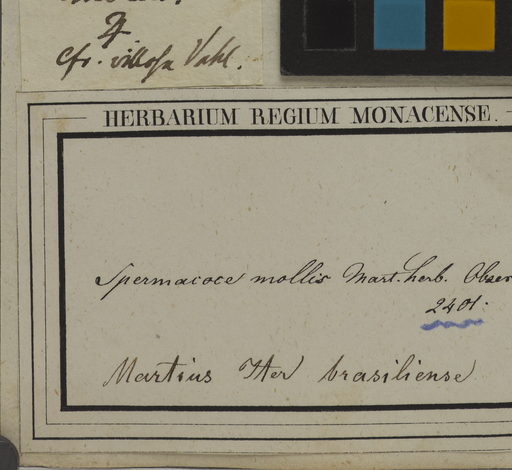 Cfr. villosa Vahl.
HERBARIUM REGIUM MONACENSE.
Spermacoce mollis Mart. herb. Obser
2401.
Martius Iter brasiliense